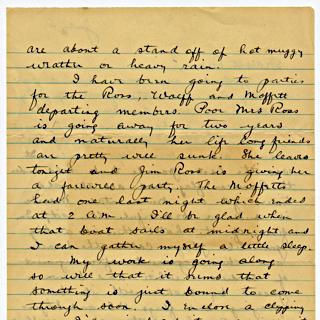 are about a stand off of hot muggy
weather or heavy rain.
I have been going to parties
for the Ross, Waeff and Moffett
departing members. Poor Mrs Ross
is going away for two years
and naturally her life long friends
are pretty well sunk. She leaves
tonight and Jim Ross is giving her
a farewell party. The Moffetts
had one last night which ended
at 2 A.M. I'll be glad when
that boat sails at midnight and
I can gather myself a little sleep.
My work is going along
so well that it seems that
something is just bound to come
through soon. I enclose a clipping